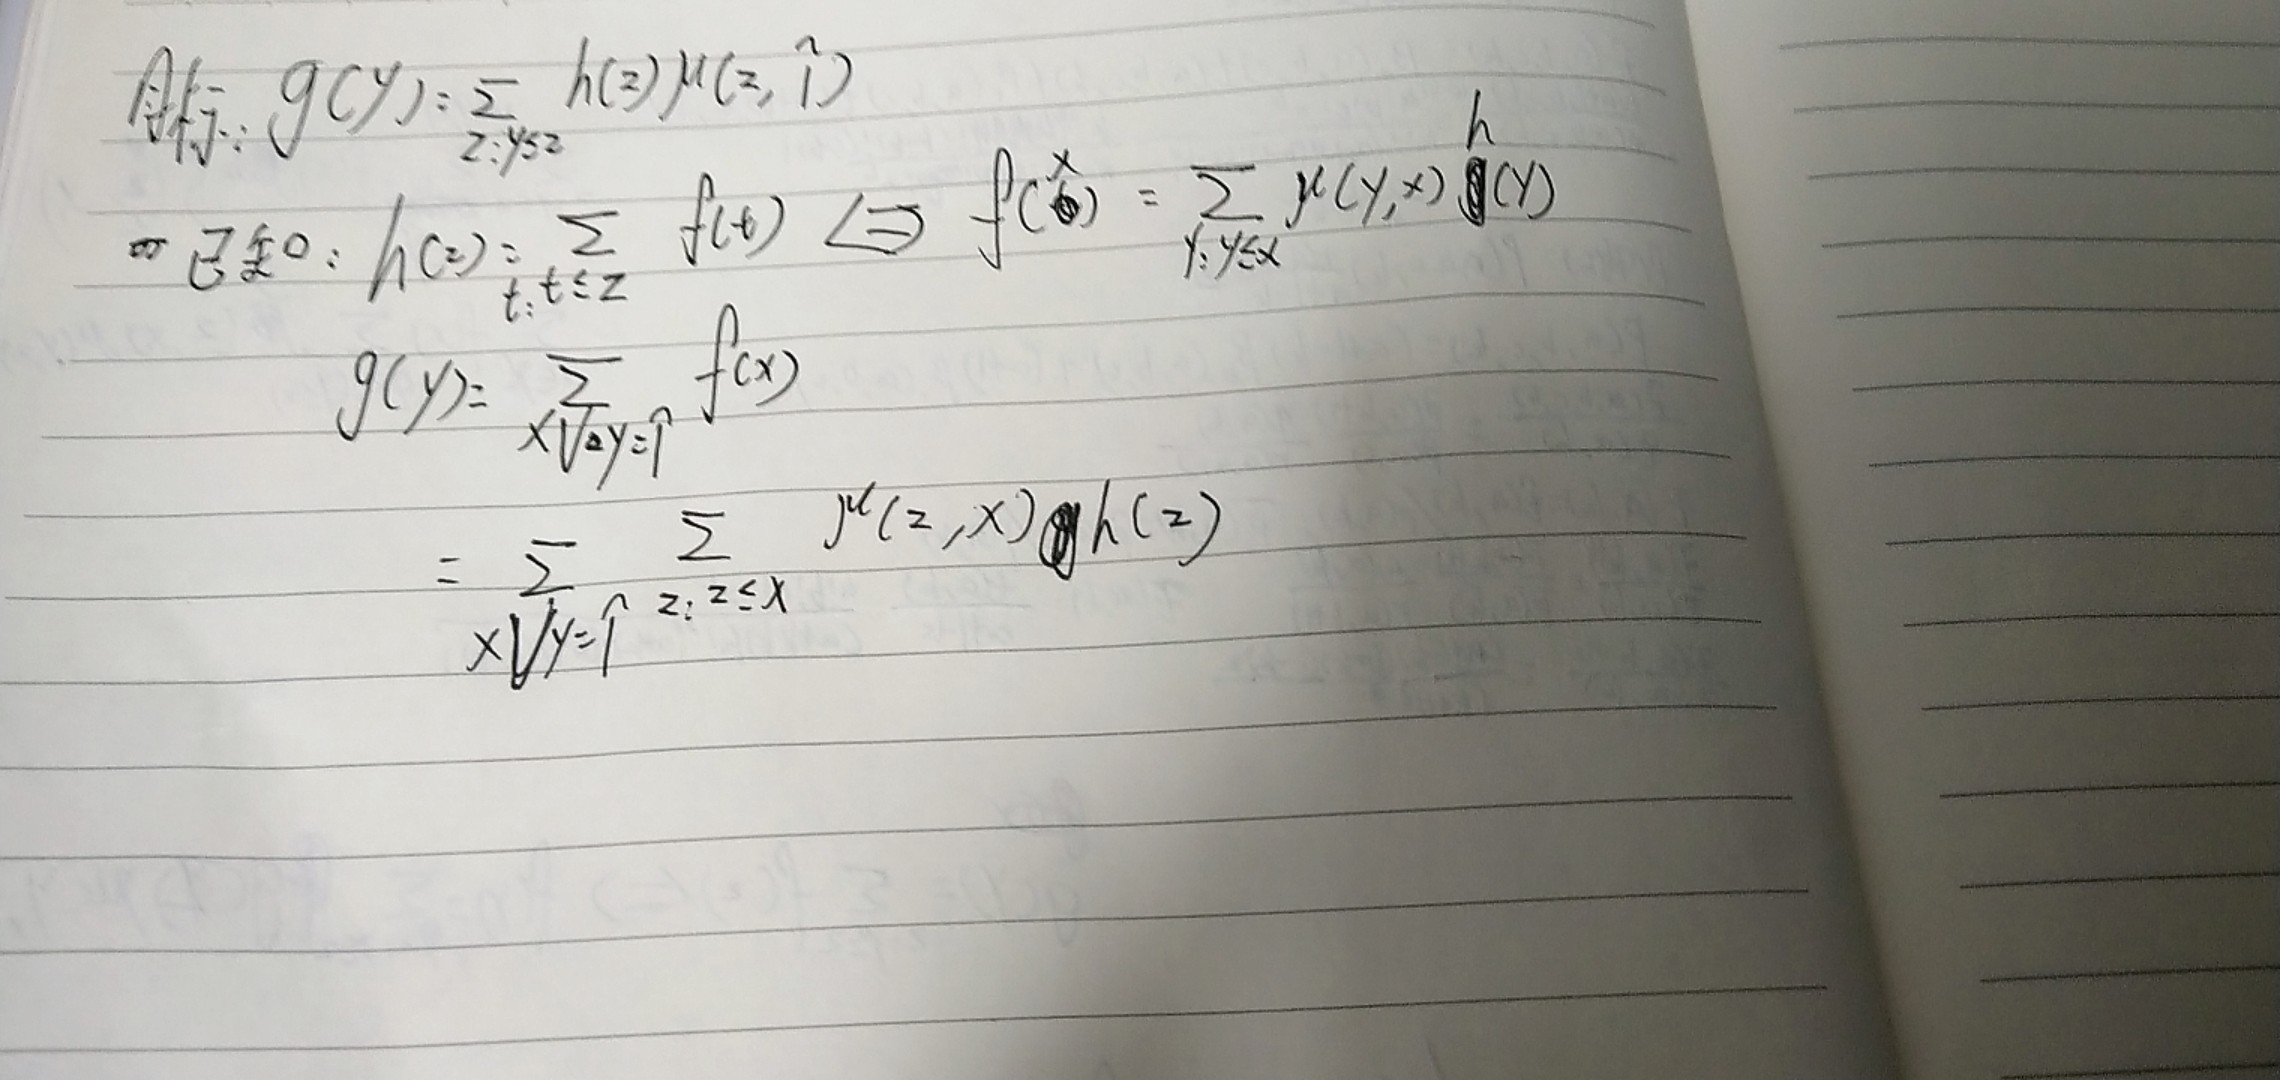 目标: g(y) = Σ_{z:y≤z} h(z) μ(z, 1̂)
已知: h(z) = Σ_{t:t≤z} f(t) ⇔ f(x) = Σ_{y:y≤x} μ(y,x) h(y)
g(y) = Σ_{x∨y=1̂} f(x)
= Σ_{x∨y=1̂} Σ_{z:z≤x} μ(z,x) h(z)